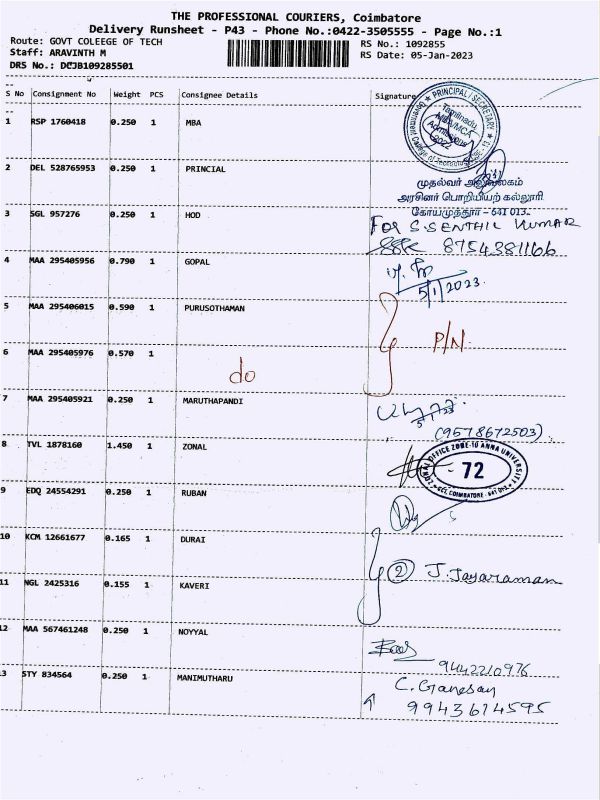 THE PROFESSIONAL COURIERS, Coimbatore
Delivery Runsheet - P43 - Phone No.:0422-3505555 - Page No.:1
Route: GOVT COLEEGE OF TECH
RS No.: 1092855
Staff: ARAVINTH M
RS Date: 05-Jan-2023
DRS No.: DCJB109285501
S No Consignment No Weight PCS Consignee Details Signature
1 RSP 1760418 0.250 1 MBA
PRINCIPAL/SECRETARY
Tamilnadu
MBA/MCA
Admissions
2022
2 DEL 528765953 0.250 1 PRINCIAL
முதல்வர் அலுவலகம்
அரசினர் பொறியியற் கல்லூரி
கோயமுத்தூர் - 641 013.
3 SGL 957276 0.250 1 HOD
FOR S.SENTHIL KUMAR
8754381166
4 MAA 295405956 0.790 1 GOPAL
5/1/2023.
5 MAA 295406015 0.590 1 PURUSOTHAMAN
P/N.
6 MAA 295405976 0.570 1
do
7 MAA 295405921 0.250 1 MARUTHAPANDI
(9578672503).
8 TVL 1878160 1.450 1 ZONAL
ZONAL OFFICE ZONE-10 ANNA UNIVERSITY
72
GCT, COIMBATORE - 641 013.
9 EDQ 24554291 0.250 1 RUBAN
10 KCM 12661677 0.165 1 DURAI
2 J. Jayaraman
11 NGL 2425316 0.155 1 KAVERI
12 MAA 567461248 0.250 1 NOYYAL
9442210976
3 STY 834564 0.250 1 MANIMUTHARU
C. Ganesan
9943614595